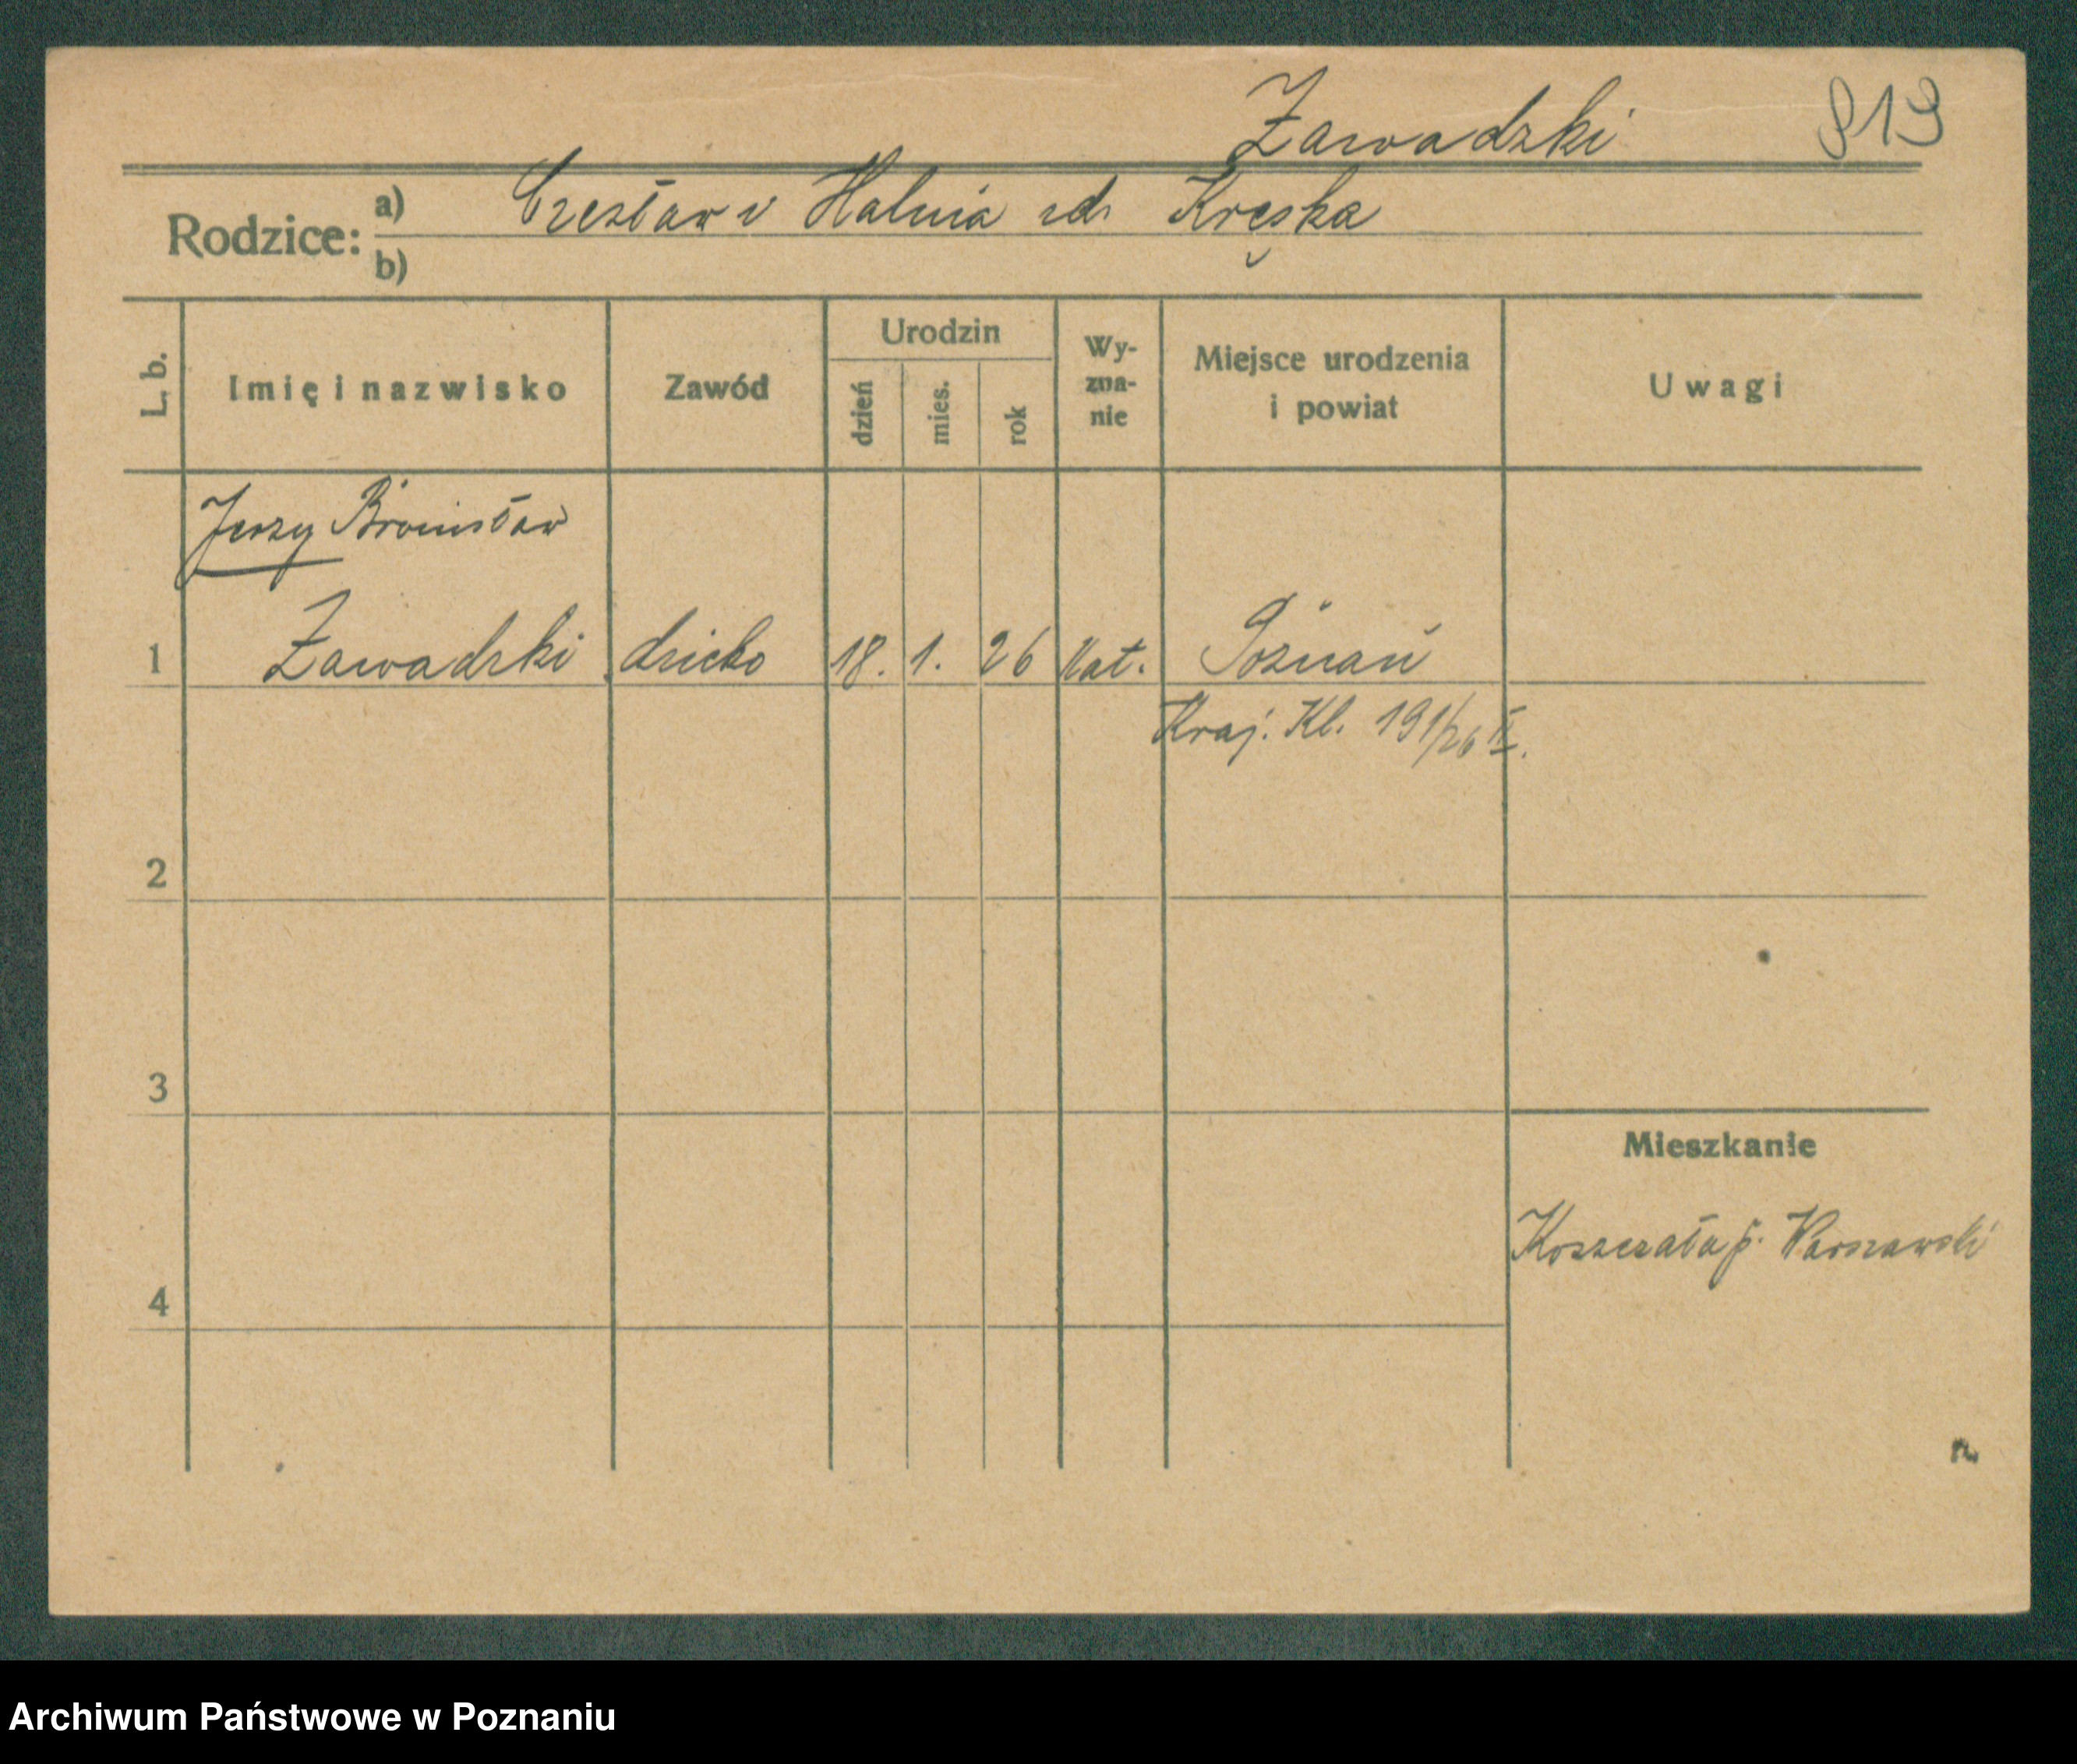 Zawadzki 919
Rodzice: a) Czesław i Halnia zd. Kręska
b)
L. b.
Imię i nazwisko
Zawód
Urodzin
dzień
mies.
rok
Wy-
zna-
nie
Miejsce urodzenia
i powiat
Uwagi
Jerzy Bronisław
1 Zawadzki dziecko 18. 1. 26 kat. Poznań
Kraj. Kl. 191/26 II.
2
3
Mieszkanie
Koszczała p. Warszawski
4
Archiwum Państwowe w Poznaniu